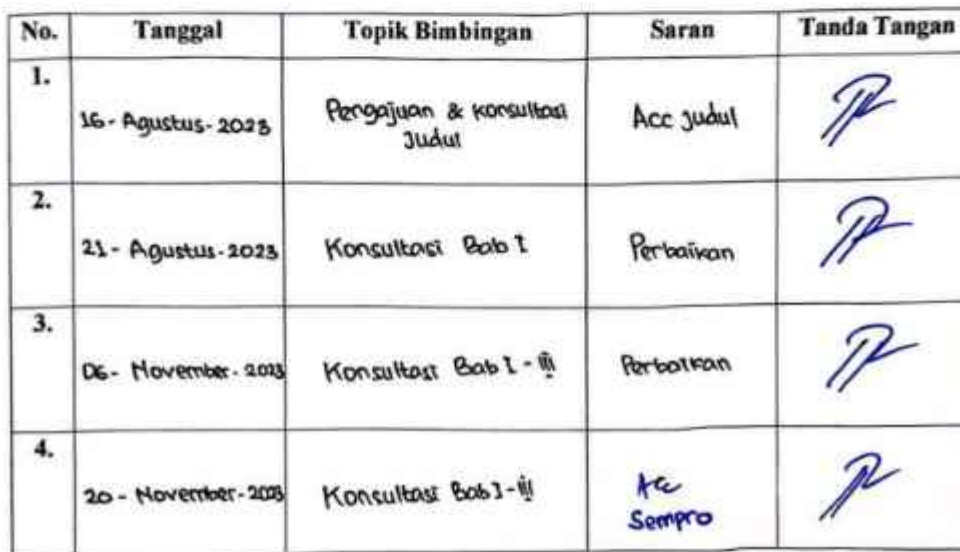 No. Tanggal Topik Bimbingan Saran Tanda Tangan
1.
16-Agustus-2023 Pengajuan & konsultasi Judul Acc judul
2.
21-Agustus-2023 Konsultasi Bab I Perbaikan
3.
06-November-2023 Konsultasi Bab I-III Perbaikan
4.
20-November-2023 Konsultasi Bab I-III Acc Sempro